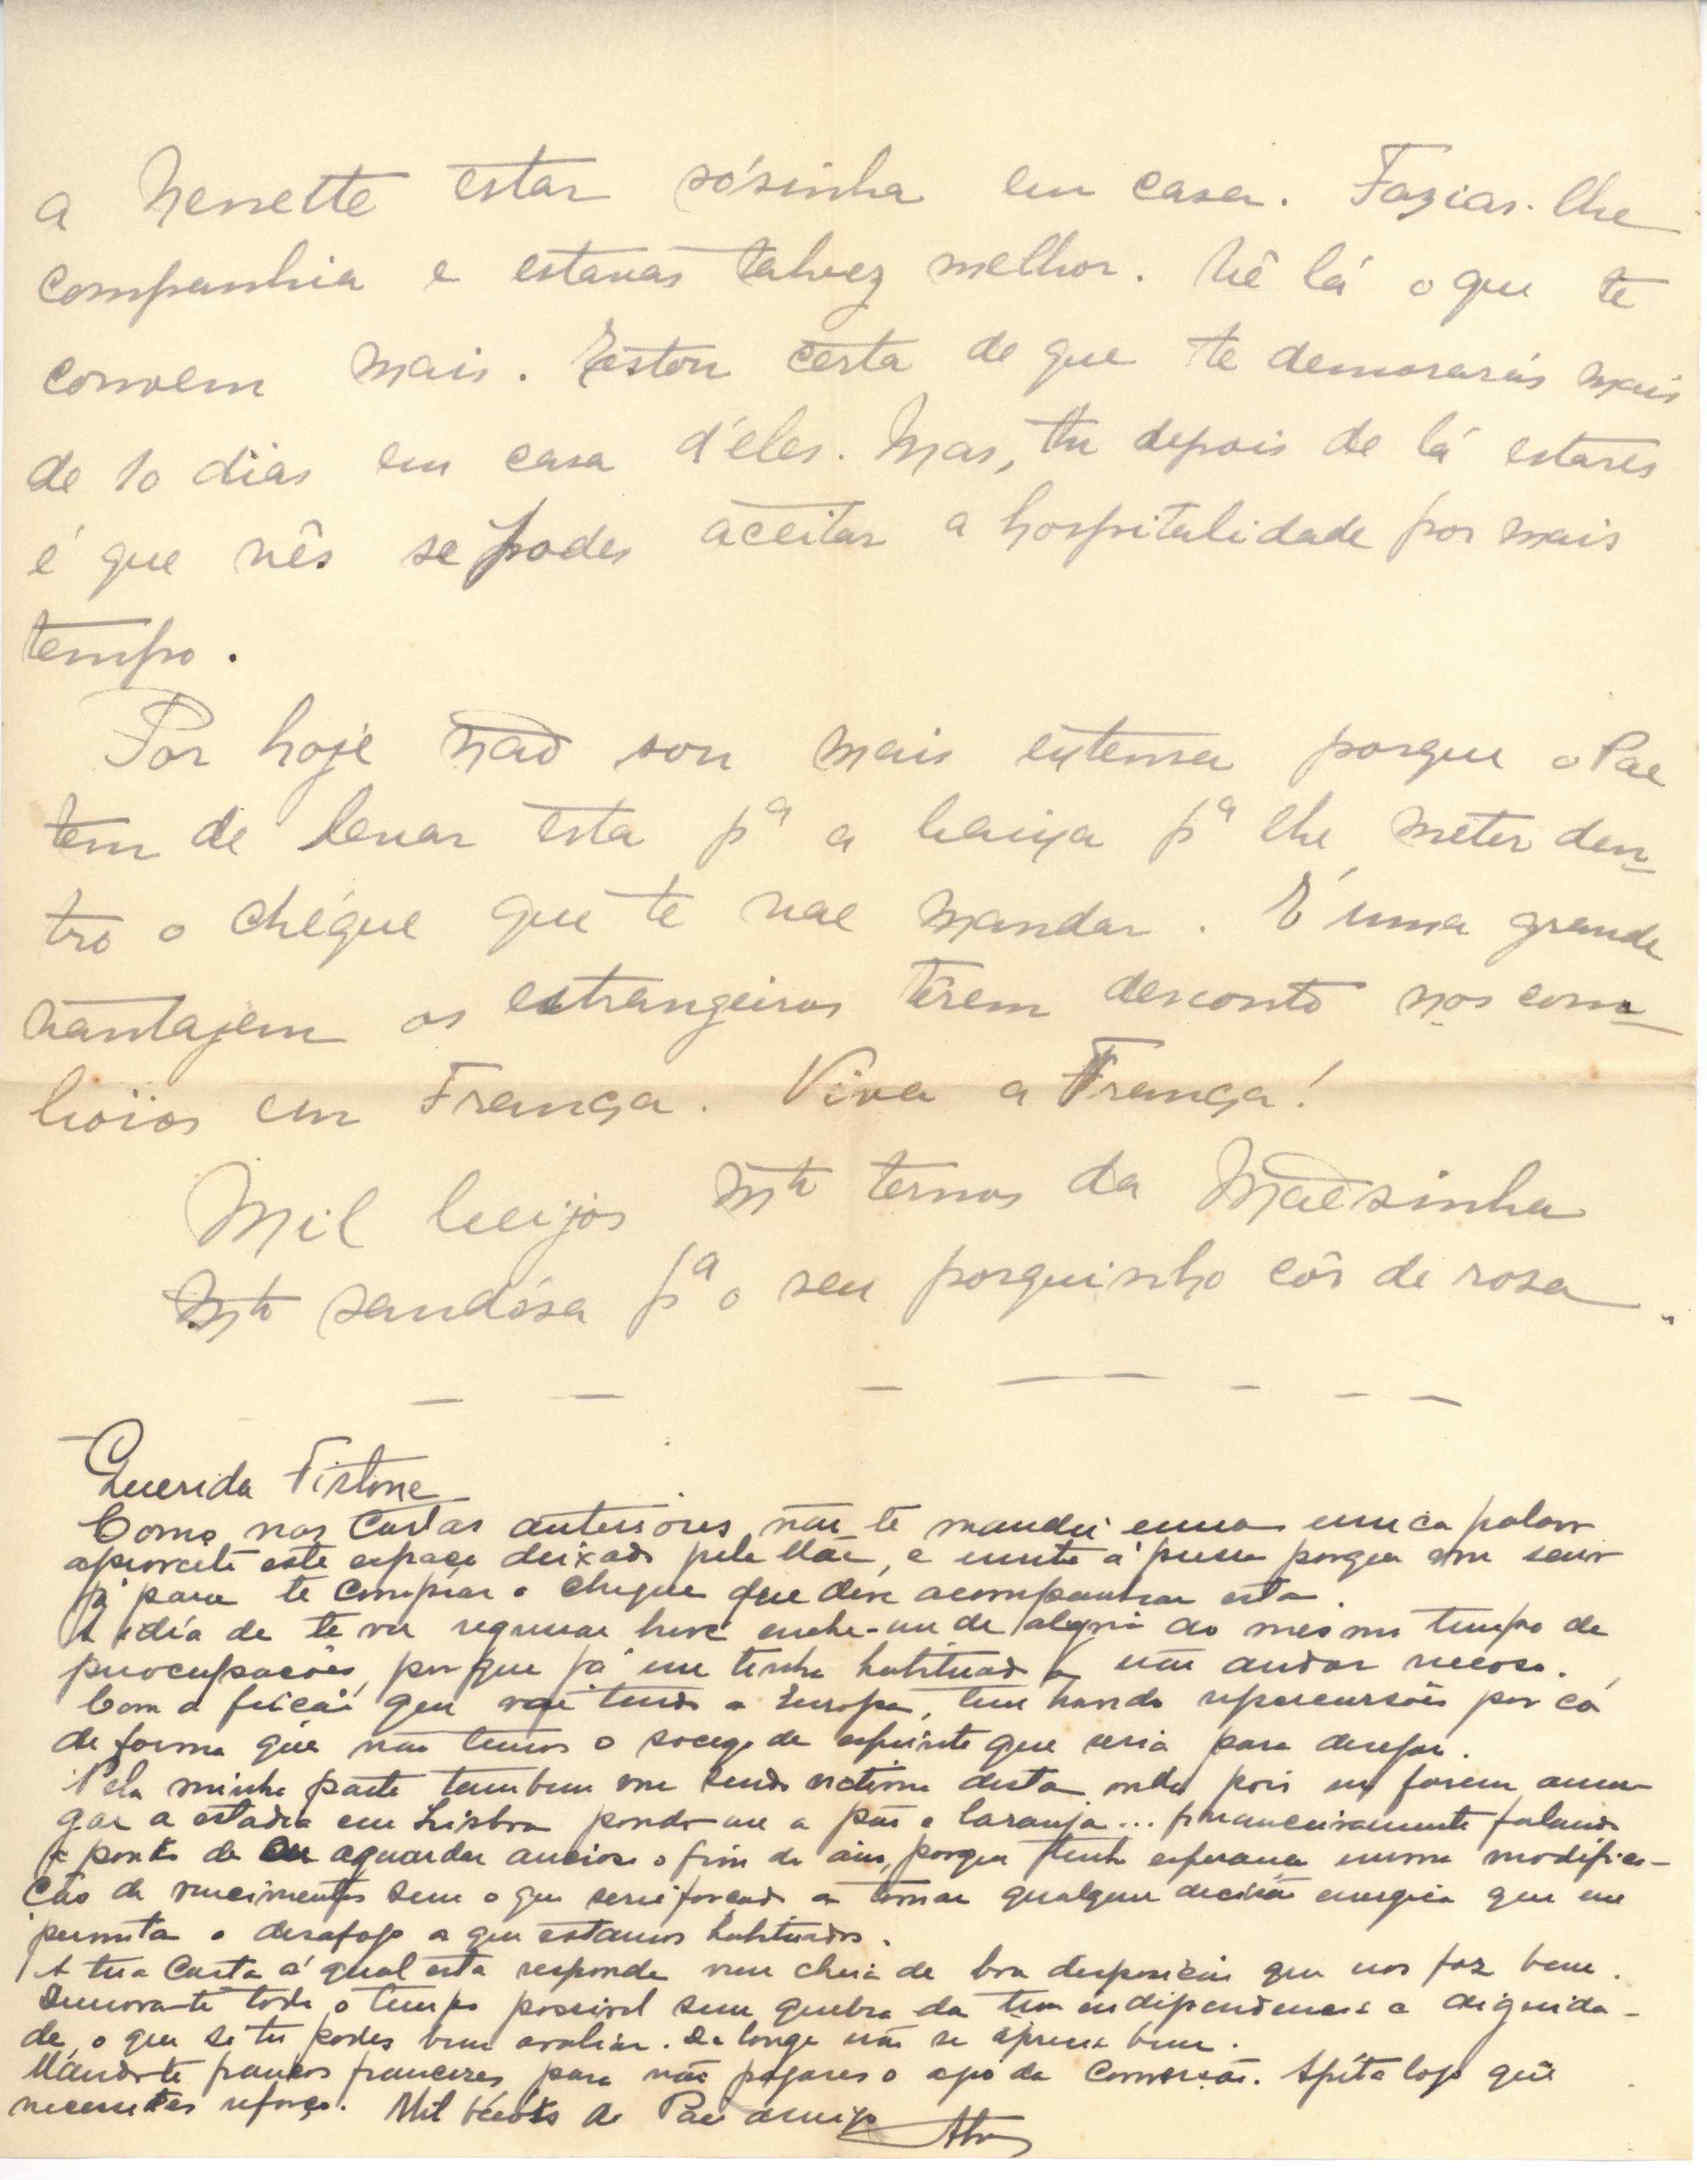 a Nenette estar sósinha em casa. Fazias-lhe
companhia e estavas talvez melhor. Vê lá o que te
convem mais. Estou certa de que te demorarás mais
de 10 dias em casa d'eles. Mas, tu depois de lá estares
é que vês se podes aceitar a hospitalidade por mais
tempo.
Por hoje não sou mais extensa porque o Pae
tem de levar esta pª a baixa pª lhe meter den-
tro o chéque que te vae mandar. É uma grande
vantajem os estrangeiros têrem desconto nos com-
boios em França. Viva a França!
Mil beijos mto ternos da Mãesinha
Mto saudósa pª o seu porquinho côr de rosa.
Querida Fistone
Como nas cartas anteriores não te mandei uma unica palavra
aproveito este espaço deixado pela Mãe, e muito á pressa porque vou sair
já para te comprar o cheque que deve acompanhar esta.
A idéa de te ver regressar breve enche-me de alegria ao mesmo tempo de
preocupações, porque já me tinha habituado a não andar
Com a feição que vae tendo a Europa, tem havido repercursões por cá
de forma que não temos o socego de espirito que seria para desejar.
Pela minha parte tambem vou sendo victima desta onda pois me fazem amar-
gar a estadia em Lisboa pondo-me a pão e laranja... financeiramente falando
a ponto de eu aguardar ancioso o fim do ano, porque tenho esperança numa modifica-
ção de vencimentos sem o que serei forçado a tomar qualquer decisão energica que me
permita o desafogo a que estamos habituados.
A tua carta á qual esta responde vem cheia de boa disposição que nos faz bem.
Demora-te todo o tempo possivel sem quebra da tua independencia e dignida-
de, o que só tu podes bem avaliar. De longe não se aprecia bem.
Mando-te francos francezes para não pagares o agio da conversão. Apita logo que
necessites reforço. Mil beijos do Pae amigo